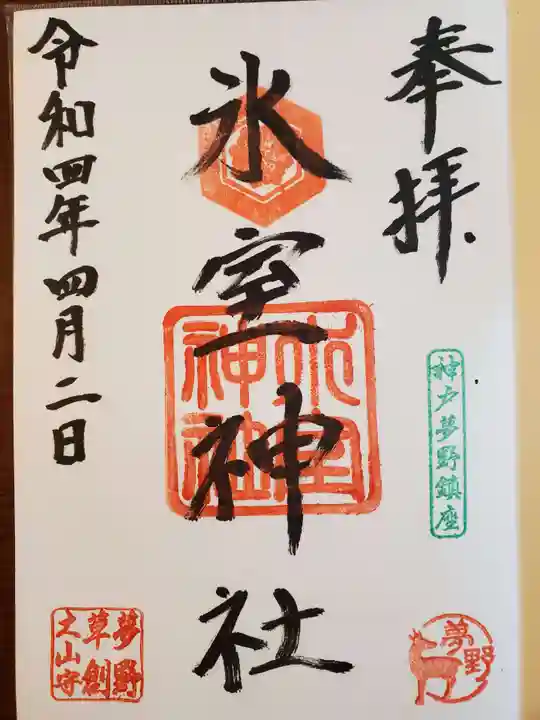 奉拝
神戸夢野鎮座
夢野
氷室神社
氷室
神社
令和四年四月二日
夢野
草創
之山守